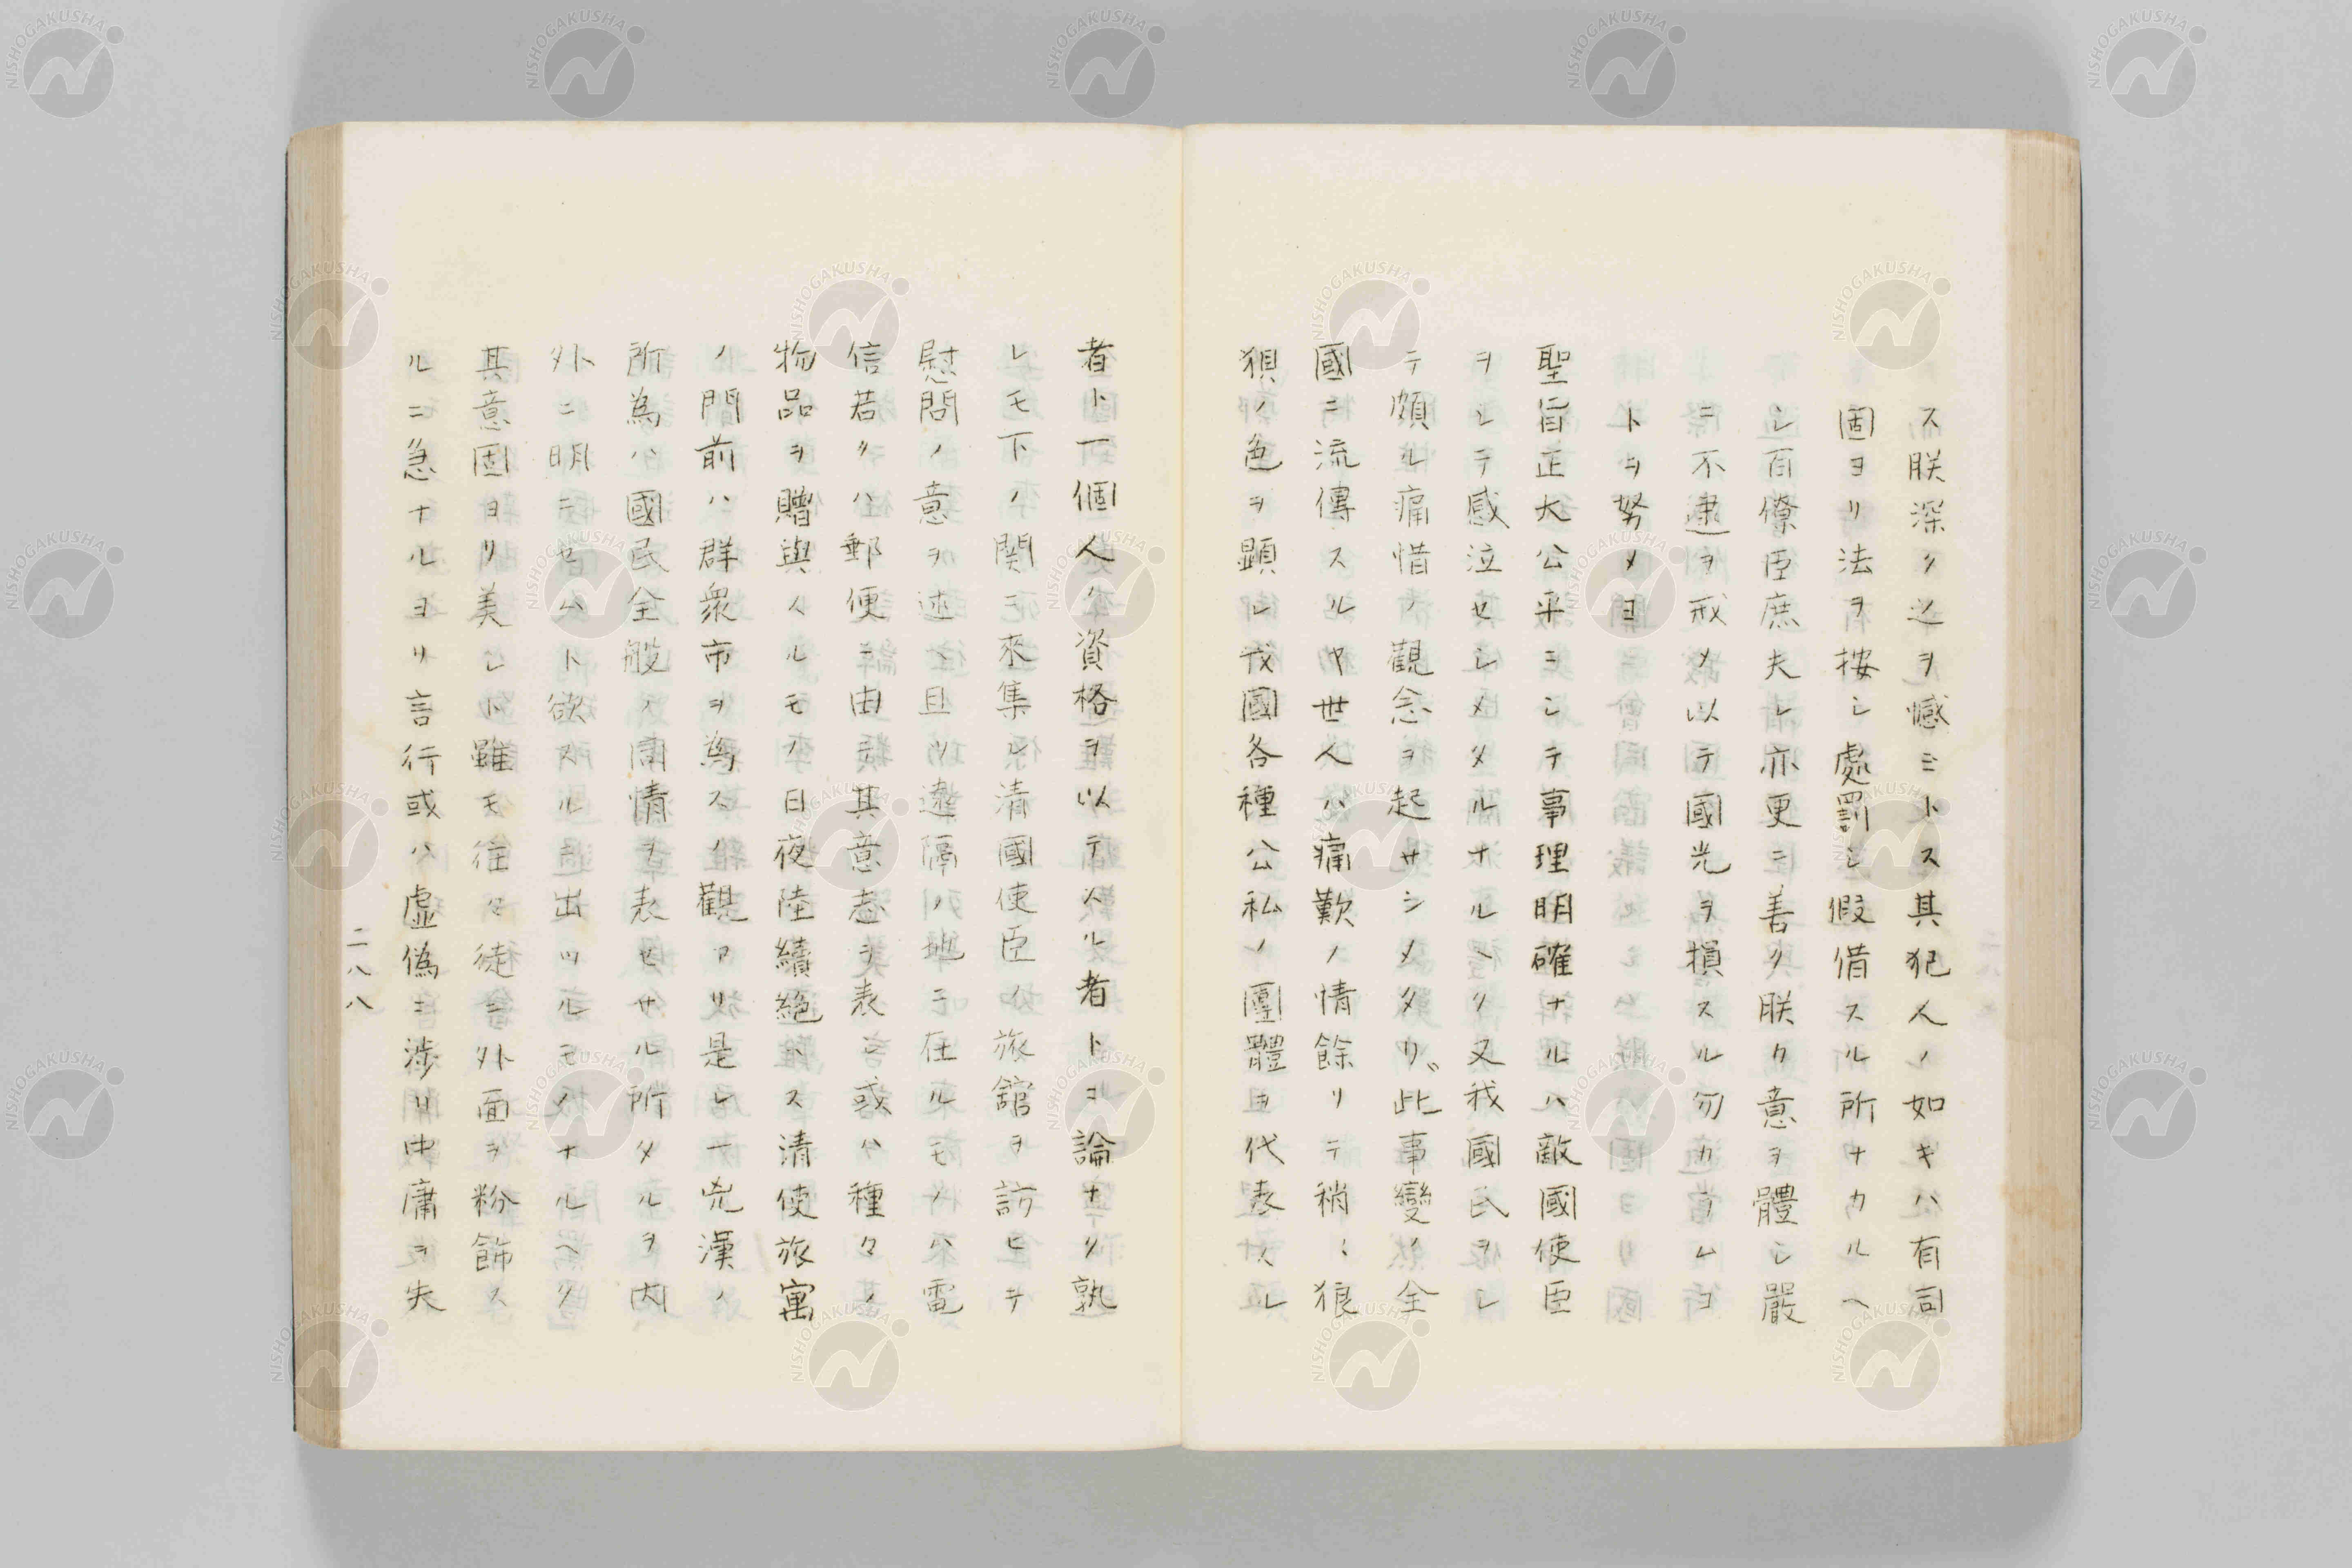 ス朕深ク之ヲ憾ミトス其犯人ノ如キハ有司
固ヨリ法ヲ按シ處罰シ假借スル所ナカルヘ
シ百僚臣庶夫レ亦更ニ善ク朕カ意ヲ體シ嚴
ニ不逮ヲ戒メ以テ國光ヲ損スル勿カラムコ
トヲ努メヨ
聖旨正大公平ニシテ事理明確ナルハ敵國使臣
ヲシテ感泣セシメタルナルヘク又我國民ヲシ
テ頗ル痛惜ノ觀念ヲ起サシメタリ此事變ノ全
國ニ流傳スルヤ世人ハ痛歎ノ情餘リテ稍〻狼
狽ノ色ヲ顕レ我國各種公私ノ團體ヲ代表スル
者ト一個人ノ資格ヲ以テスル者トヲ論ナク孰
レモ下ノ関ニ來集シ清國使臣ノ旅舘ヲ訪ヒテ
慰問ノ意ヲ述ヘ且ツ遠隔ノ地ニ在ルモノハ電
信若クハ郵便ニ由テ其意志ヲ表シ或ハ種々ノ
物品ヲ贈與スルモノ日夜陸續絶ヘス清使旅寓
ノ門前ハ群衆市ヲ為スノ觀アリ是レ一兇漢ノ
所為ハ國民全般ノ同情ヲ表セサル所タルヲ内
外ニ明ニセムト欲スルニ出ツルモノナルヘク
其意固ヨリ美シト雖モ往々徒ニ外面ヲ粉飾ス
ルニ急ナルヨリ言行或ハ虚偽ニ渉リ中庸ヲ失
二八八
NISHOGAKUSHA